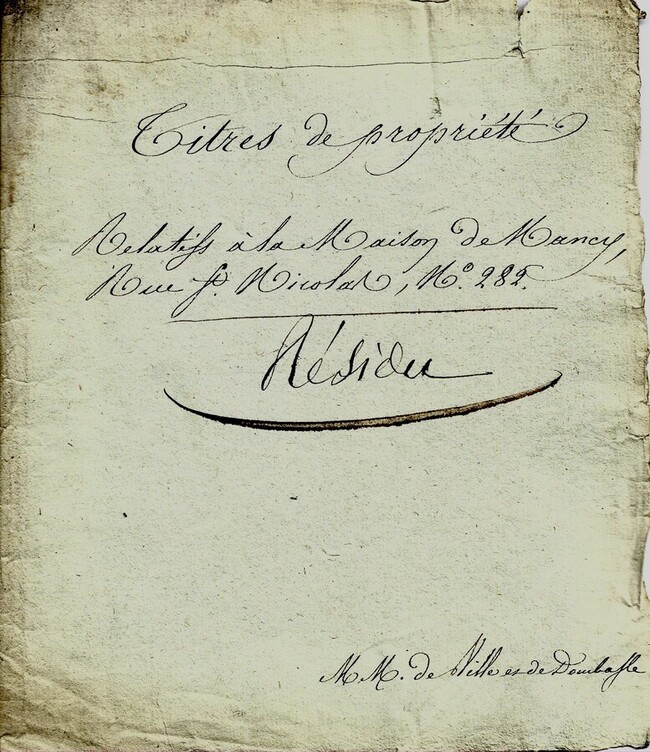 Titres de propriété
Relatifs à la Maison de Nancy,
Rue St. Nicolas, N.° 282.
Résidu
MM. de Ville et de Dombasle